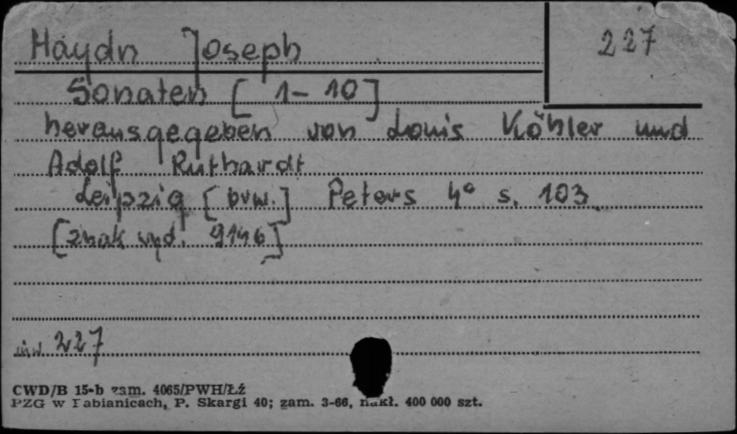 Haydn Joseph
227
Sonaten [1-10]
herausgegeben von Louis Köhler und
Adolf Ruthardt
Leipzig [bvw.] Peters 4° s. 103
[znak wyd. 9146]
inw 227
CWD/B 15-b zam. 4065/PWH/Łź
PZG w Pabianicach, P. Skargi 40; zam. 3-66, nakł. 400 000 szt.